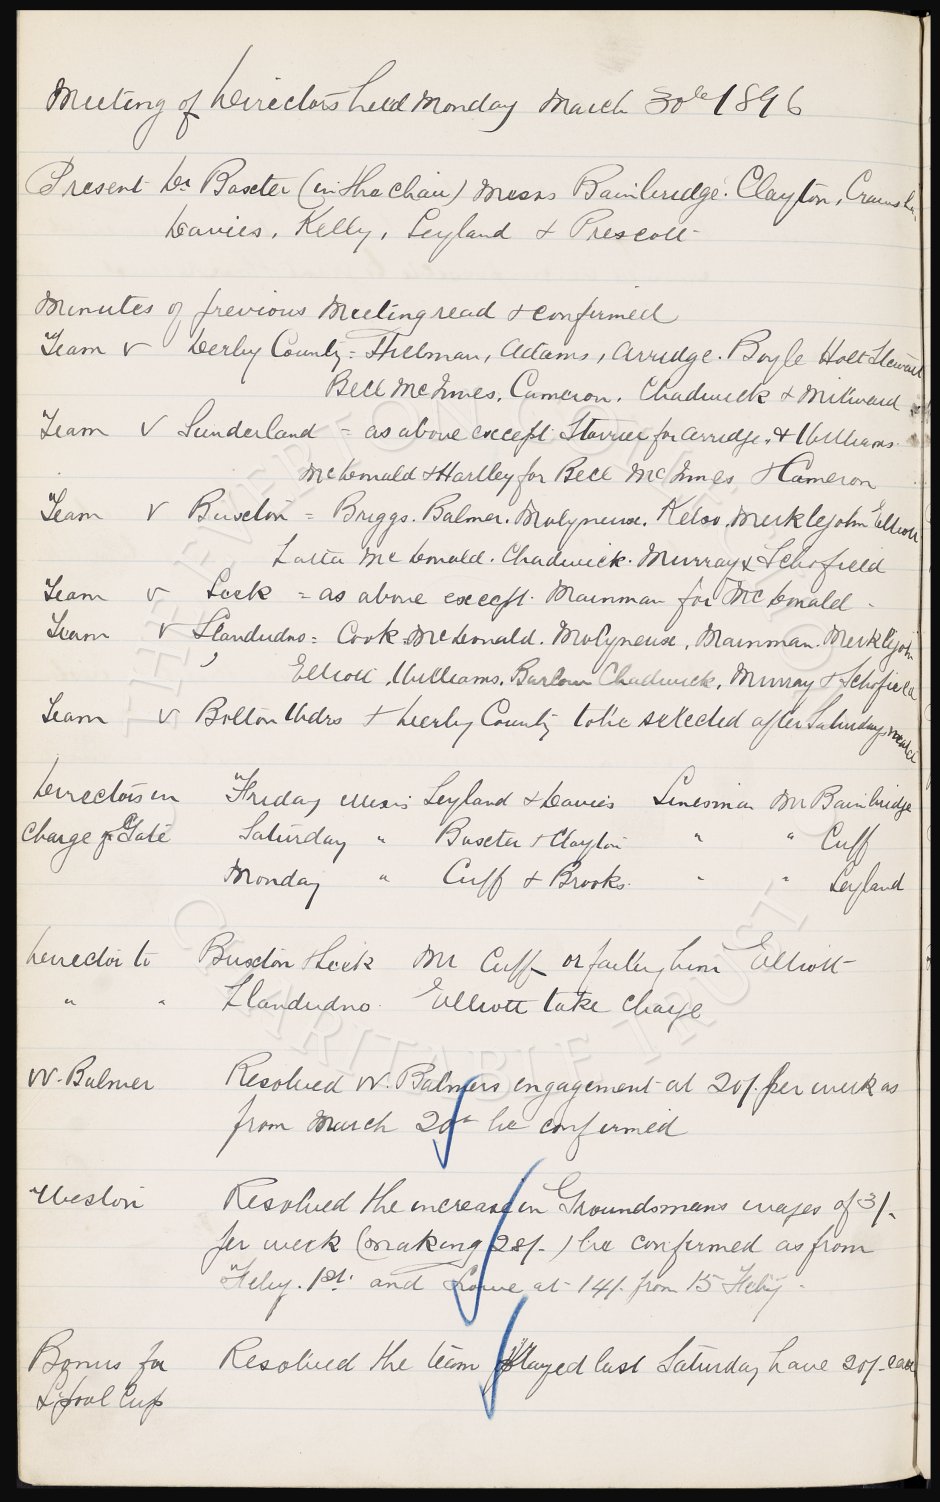 Meeting of Directors held Monday March 30th 1896
Present Dr Baxter (in the chair) Messrs Bainbridge. Clayton, Crawshaw
Davies, Kelly, Leyland & Prescott
Minutes of previous Meeting read & confirmed
Team v Derby County = Hillman, Adams, Arridge. Boyle Holt Stewart
Bell McInnes, Cameron, Chadwick & Milward
Team v Sunderland = as above except Storrier for Arridge, & Williams
McDonald & Hartley for Bell McInnes & Cameron
Team v Buxton = Briggs. Balmer. Molyneux. Kelso, Meiklejohn Elliott
Latta McDonald. Chadwick. Murray & Schofield
Team v Leek = as above except Mainman for McDonald -
Team v Llandudno = Cook = McDonald. Molyneux, Mainman. Meiklejohn
Elliott, Williams, Barlow Chadwick, Murray & Schofield
Team v Bolton Wdrs & Derby County to be selected after Saturdays match
Directors in Friday Messrs Leyland & Davies Linesman Mr Bainbridge
Charge of Gate Saturday " Baxter & Clayton " " Cuff
Monday " Cuff & Brooks. " " Leyland
Director to Buxton & Leek Mr Cuff or failing him Elliott
" " Llandudno. Elliott take charge
W. Balmer Resolved W. Balmers engagement at 20/. per week as
from March 20th be confirmed
Weston Resolved the increase in Groundsmans wages of 3/-
per week (making 28/-) be confirmed as from
Feby. 1st. and Lowe at 14/. from 15 Feby -
Bonus for Resolved the team played last Saturday have 20/- each
L'pool Cup
THE EVERTON COLLECTION
CHARITABLE TRUST